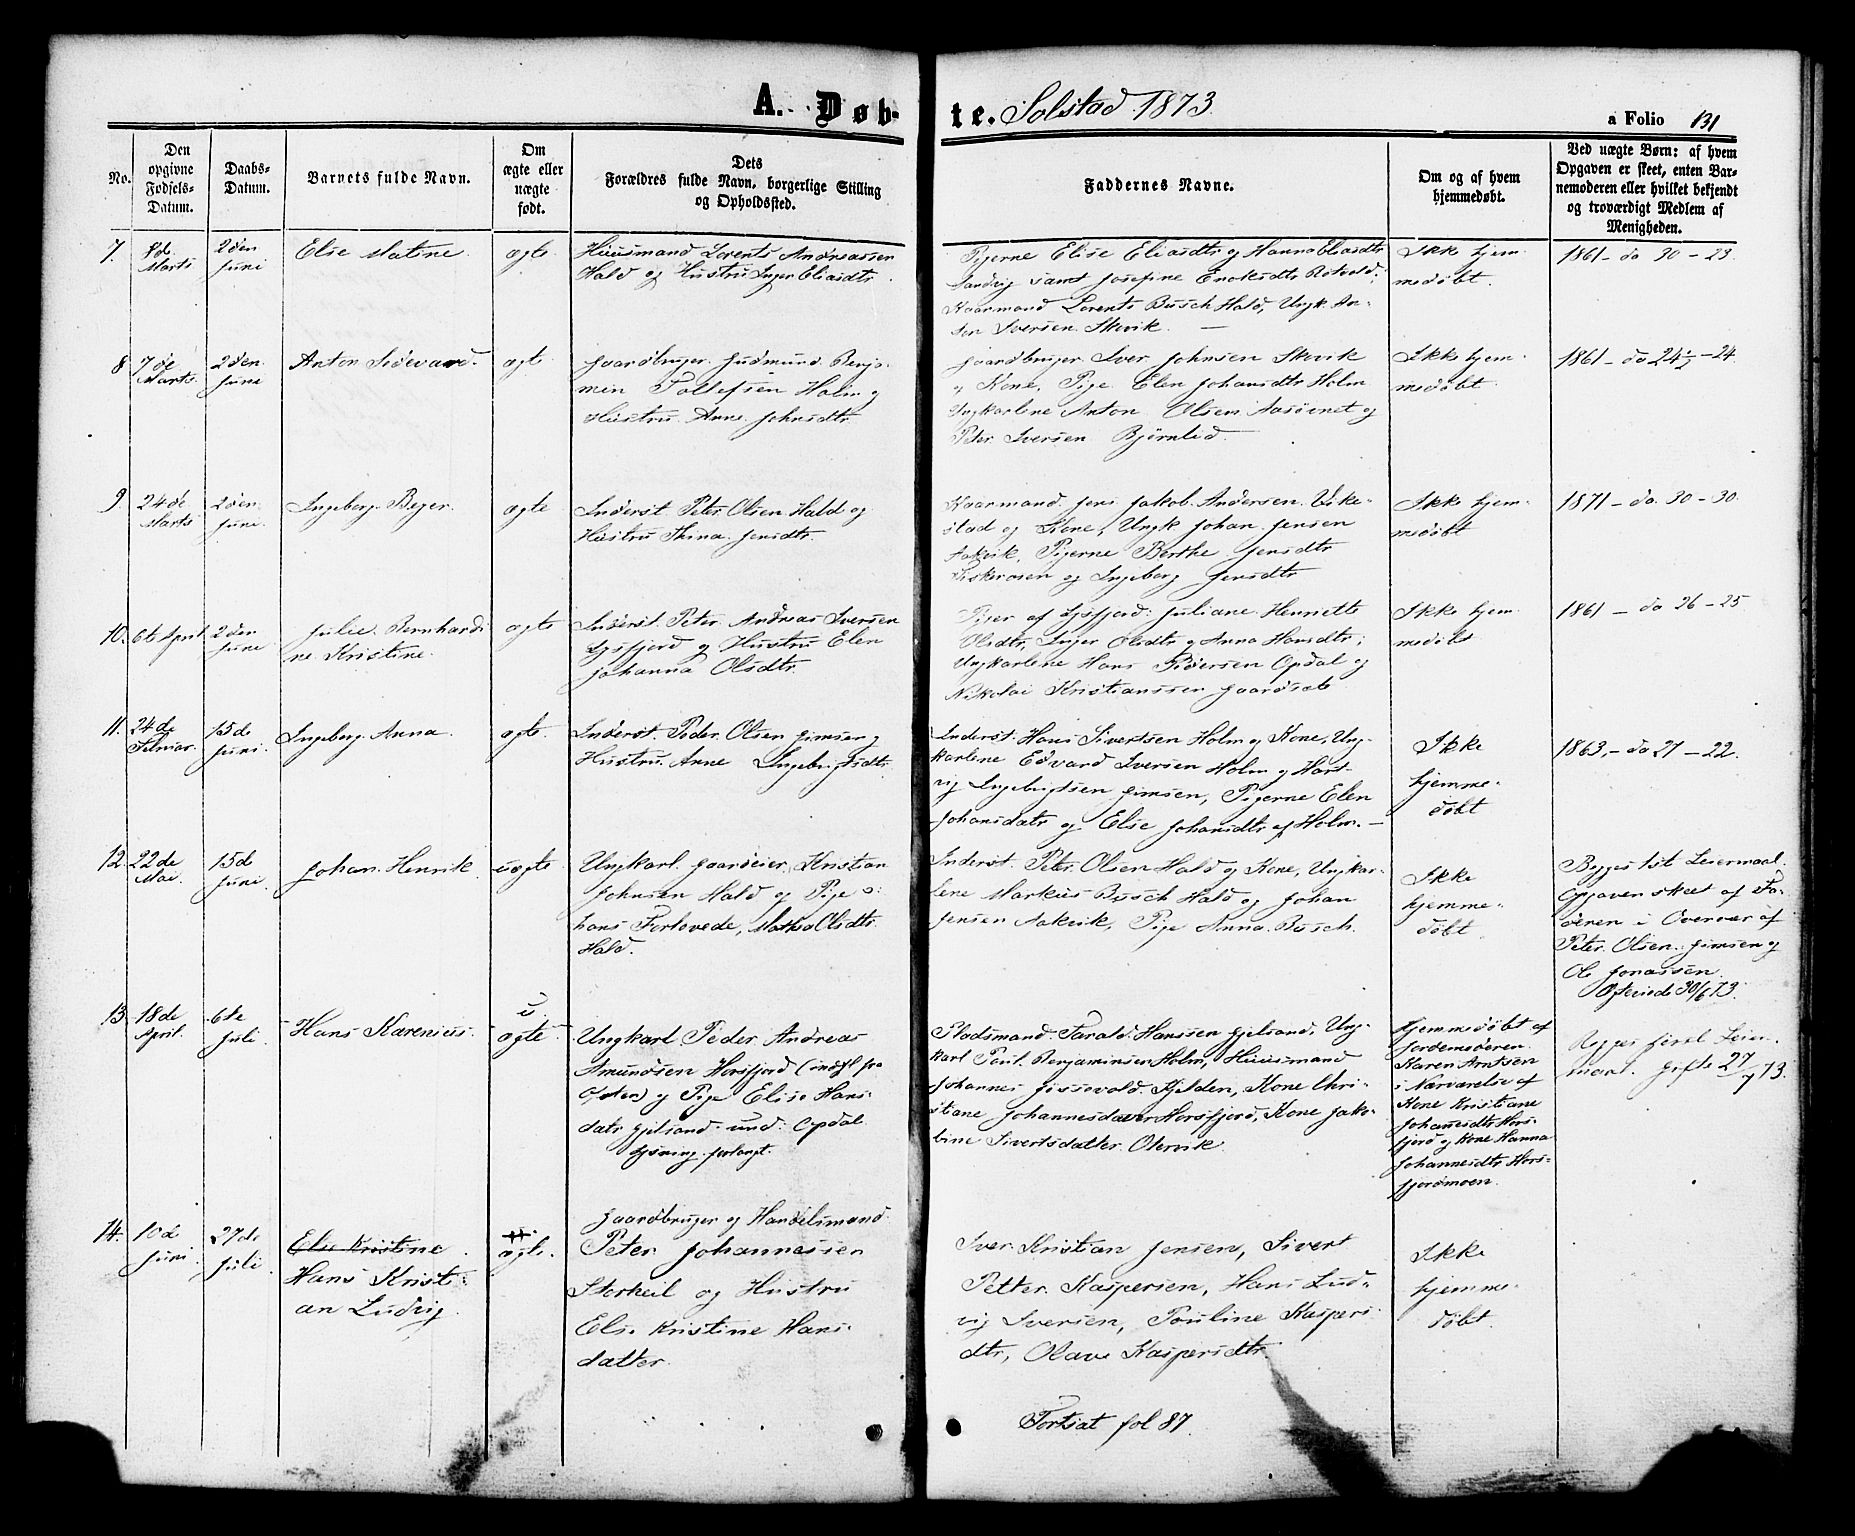 A. Døb-
te. Solstad 1873.
a Folio 131
No.
Den
opgivne
Fødsels-
Datum.
Daabs-
Datum.
Barnets fulde Navn.
Om
ægte eller
uægte
født.
Dets
Forældres fulde Navn, borgerlige Stilling
og Opholdssted.
Faddernes Navne.
Om og af hvem
hjemmedøbt.
Ved uægte Børn: af hvem
Opgaven er skeet, enten Bar-
nemoderen eller hvilket bekjendt
og troværdigt Medlem af
Menigheden.
7.
8de
Marts
2den
Juni
Else Matine.
ægte.
Huusmand Lorents Andreassen
Hald og Hustru Inger Eliasdtr.
Pigerne Elise Eliasdtr og Hanna Eliasdtr
Sandvig samt Josefine Enoksdtr
Kaarmand Lorents Busch Hald, Ungk. An-
ton Iversen Skevik. —
Ikke hjem-
medøbt.
1861 - da 30 - 23.
8
7de
Marts.
2den
Juni
Anton Sedevard.
ægte
Gaardbruger Gudmund Benja-
min Tollefsen Holm og
Hustru Anne Johnsdtr.
Gaardbruger Iver Johnsen Skevik
og Kone, Pige Elen Johansdtr Holm
Ungkarlene Anton Olsen Aasøvnet og
Peter Iversen Bjørnlid.
Ikke hjem-
medøbt.
1861 - da 24 1/2 - 24
9.
24de
Marts
2den
Juni.
Ingeborg Beyer.
ægte
Inderst Peter Olsen Hald og
Hustru Thina Jensdtr.
Kaarmand Jens Jakob Andersen Vike-
stad og Kone, Ungk Johan Jensen
Aakvik, Pigerne Berthe Jensdtr
Fiskerosen og Ingeborg Jensdtr
Ikke hjem-
medøbt
1871 - da 30 - 30.
10.
6te April
2den
Juni
Julie Bernhardi-
ne Kristine.
ægte
Inderst Peter Andreas Iversen
Lysfjord og Hustru Elen
Johanna Olsdtr.
Piger af Lysfjord: Juliane Henriette
Olsdtr, Inger Olsdtr og Anna Hansdtr;
Ungkarlene Hans Pedersen Opdal og
Nikolai Kristianssen Gaardsete
Ikke hjem-
medøbt
1861 - da 26 - 25
11.
24de
Februar.
15de
Juni.
Ingeborg Anna.
ægte.
Inderst Peder Olsen Gimsen og
Hustru Anne Ingebrigtsdtr.
Inderst Hans Sivertsen Holm og Kone, Ung-
karlene Edvard Iversen Holm og Hart-
vig Ingebrigtsen Gimsen, Pigerne Elen
Johansdatr og Else Johansdtr af Holm. —
Ikke
hjemme-
døbt
1863, - da 27 - 22.
12.
22de
Mai.
15de
Juni
Johan Henrik.
uægte
Ungkarl Gaardeier Kristian
Johnsen Hald og Pige o:
hans Forlovede, Mathea Olsdtr
Hald.
Inderst Peter Olsen Hald og Kone, Ungkar-
lene Markus Busch Hald og Johan
Jensen Aakvik, Pige Anna Busch.
Ikke
hjemme-
døbt.
Begges 1st Leiermaal.
Opgaven skeet af Fa-
deren i Overvær af
Peter Olsen Gimsen og
Ole Jonassen.
30/6 73.
13.
18de
April.
6te
Juli
Hans Karenius.
u
ægte
Ungkarl Peder Andreas
Amundsen Horsfjord (indfl fra
Ofoten) og Pige Elise Hans-
datr Gjelsand und: Opdal
Lysning forlangt.
Pladsmand Tarald Hanssen Gjelsand, Ung-
karl Paul Benjaminsen Holm, Huusmand
Johannes Kjelden, Kone Chri-
stiane Johannesdatter Horsfjord, Kone Jako-
bine Sivertsdatter Olervik.
Hjemmedøbt af
Jordemoderen
Karen Arntsen
i Nærværelse af
Kone Kristiane
Johannesdtr Hors-
fjord og Kone Hanna
Johannesdtr Hors-
fjordmoen.
Begges første Leier-
maal. Gifte 27/7 73.
14.
10de
Juni
27de
Juli
Else Kristine.
Hans Kristi-
an Ludvig.
ægte.
Gaardbruger og Handelsmand
Peter Johannessen
Storheil og Hustru
Else Kristine Hans-
datter.
Iver Kristian Jensen, Sivert
Petter Kaspersen, Hans Lud-
vig Iversen, Pauline Kaspers-
dtr, Olave Kaspersdtr.
Ikke
hjemme-
døbt.
Fortsat fol 87.